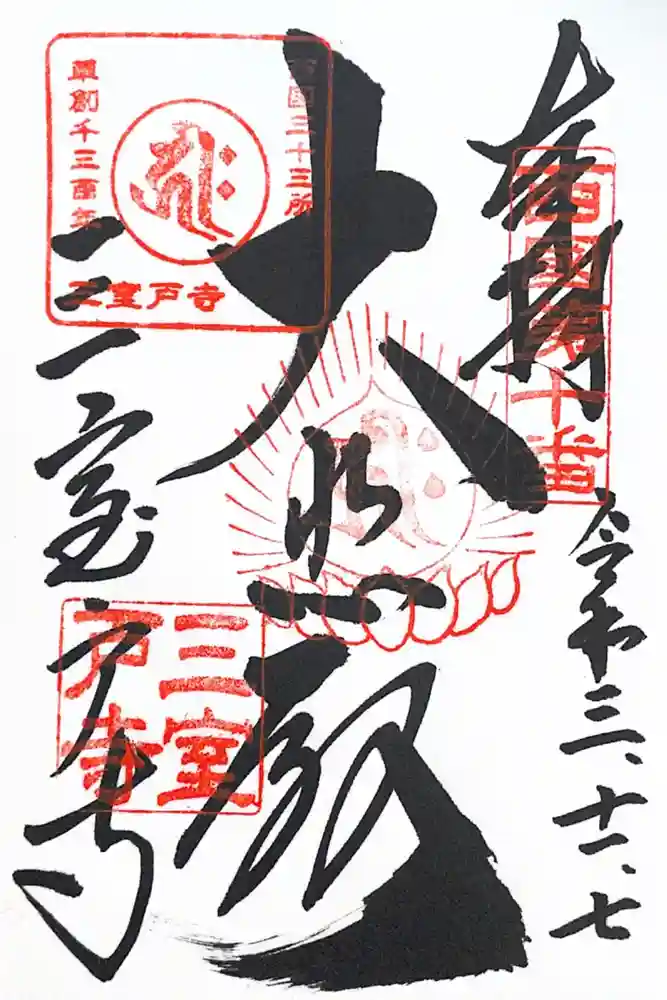 奉拝
西國第十番
令和三、十一、七
大悲殿
西國三十三所
草創千三百年
三室戸寺
三室戸寺
三室戸寺